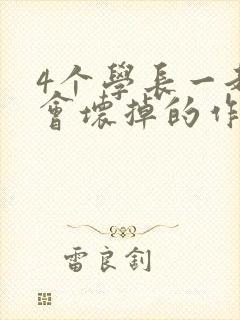 4个學長一起
會壞掉的作
雷良釗